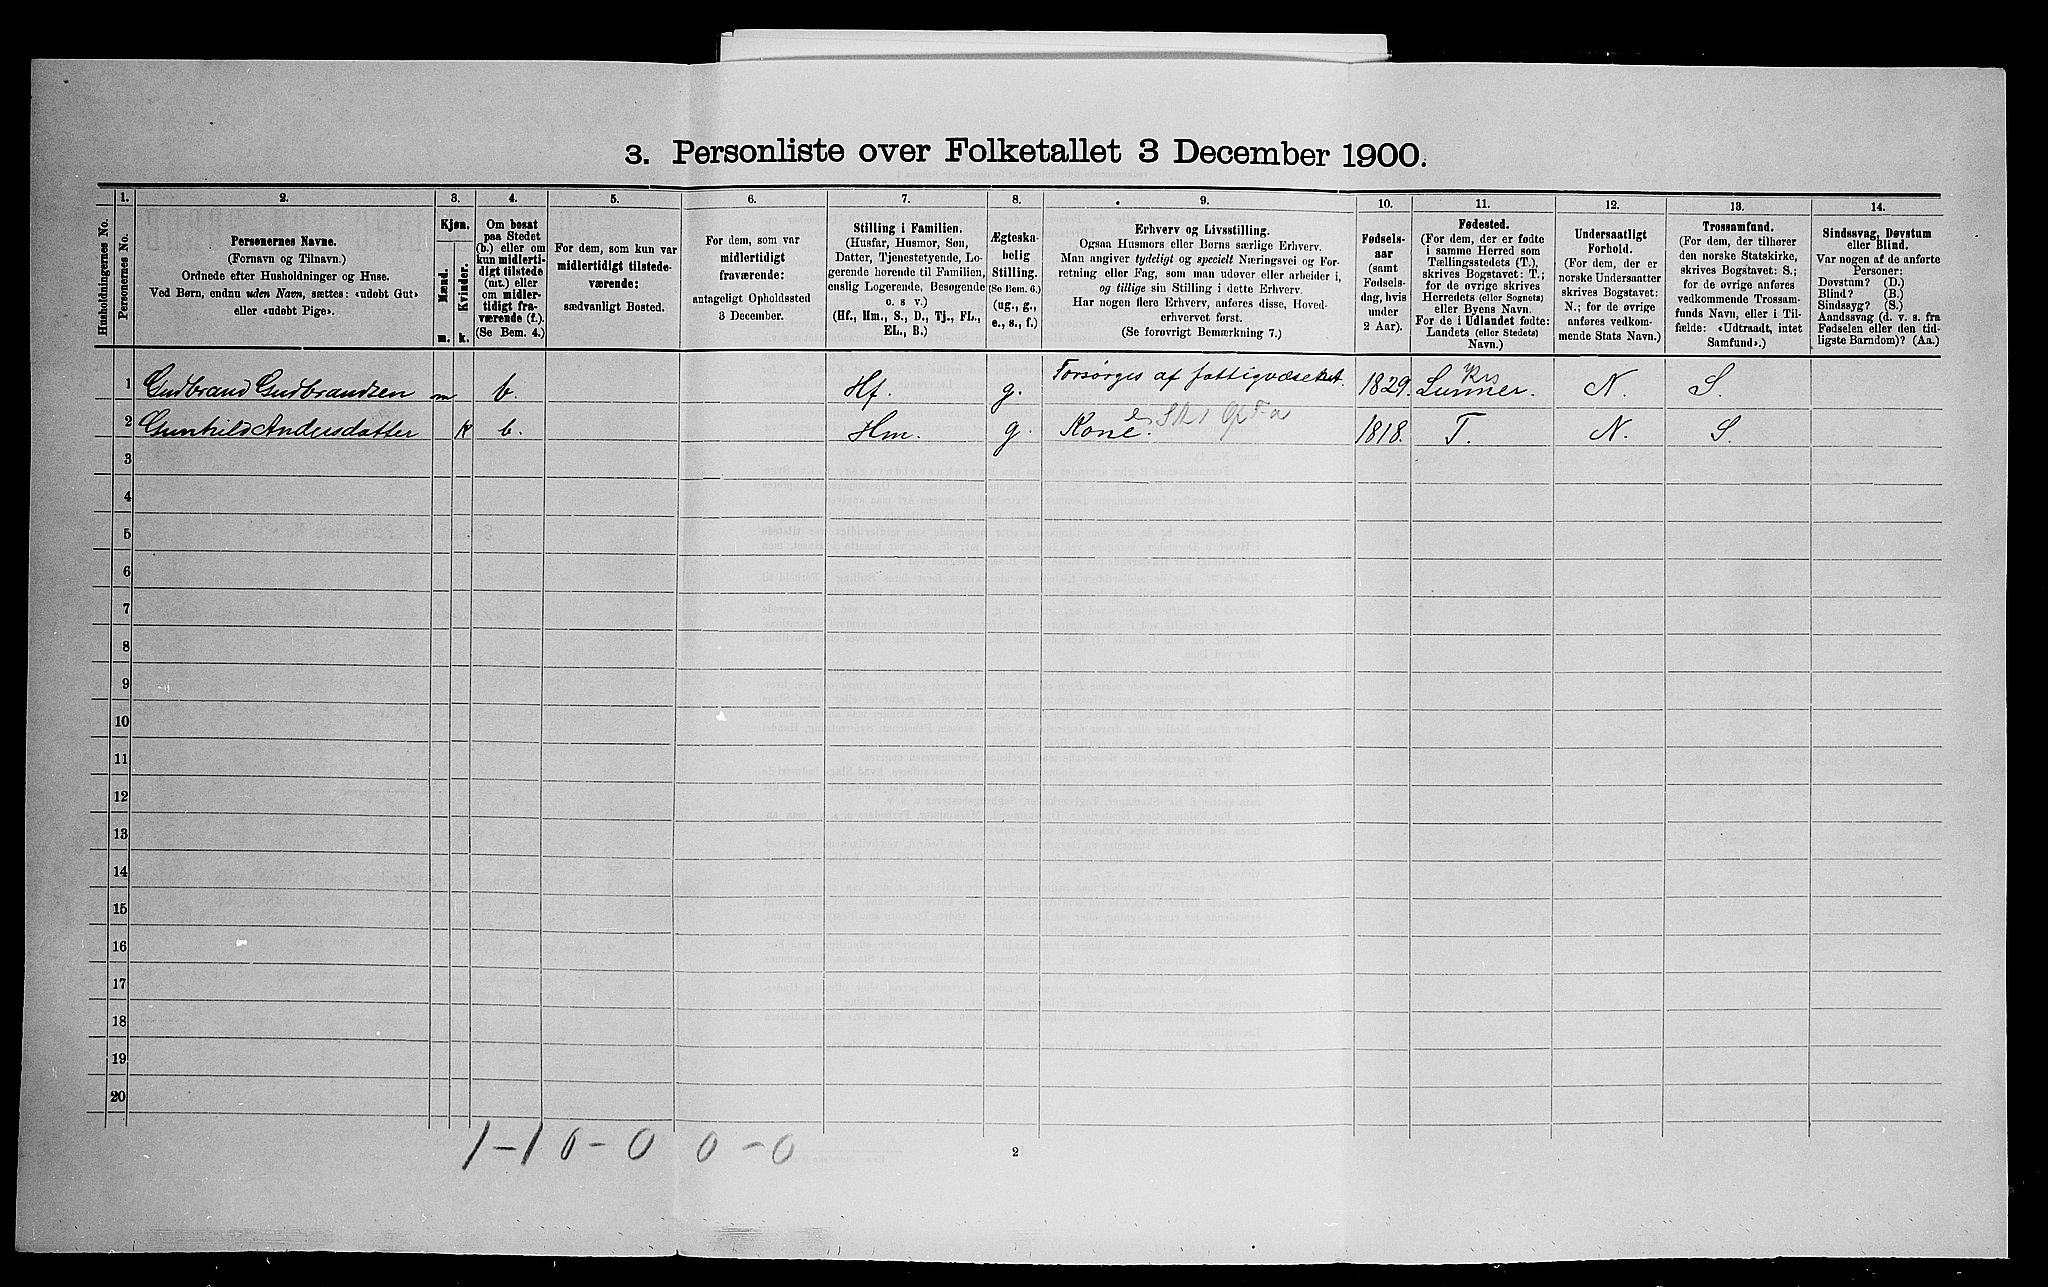 3. Personliste over Folketallet 3 December 1900.
Husholdningernes No.
1.
Personernes No.
2.
Personernes Navne.
(Fornavn og Tilnavn.)
Ordnede efter Husholdninger og Huse.
Ved Børn, endnu uden Navn, sættes: «udøbt Gut»
eller «udøbt Pige».
3.
Kjøn.
Mænd.
Kvinder.
m.
k.
4.
Om bosat
paa Stedet
(b.) eller om
kun midlerti-
digt tilstede
(mt.) eller
om midler-
tidigt fra-
værende (f.).
(Se Bem. 4.)
5.
For dem, som kun var
midlertidigt tilstede-
værende:
sædvanligt Bosted.
6.
For dem, som var
midlertidigt
fraværende:
antageligt Opholdssted
3 December.
7.
Stilling i Familien.
(Husfar, Husmor, Søn,
Datter, Tjenestetyende, Lo-
gerende hørende til Familien,
enslig Logerende, Besøgende
o. s v.)
(Hf., Hm., S., D., Tj., FL.,
EL., B.)
8.
Ægteska-
belig
Stilling.
(Se Bem. 6.)
(ug., g.,
e., s., f.)
9.
Erhverv og Livsstilling.
Ogsaa Husmors eller Børns særlige Erhverv.
Man angiver tydeligt og specielt Næringsvei og For-
retning eller Fag, som man udøver eller arbeider i,
og tillige sin Stilling i dette Erhverv.
Har nogen flere Erhverv, anføres disse, Hoved-
erhvervet først.
(Se forøvrigt Bemærkning 7.)
10.
Fødsels-
aar
(samt
Fødsels-
dag, hvis
under
2 Aar).
11.
Fødested.
(For dem, der er fødte
i samme Herred som
Tællingsstedets (T.),
skrives Bogstavet: T.;
for de øvrige skrives
Herredets (eller Sognets)
eller Byens Navn.
For de i Udlandet fødte:
Landets (eller Stedets)
Navn.)
12.
Undersaatligt
Forhold.
(For dem, der er
norske Undersaatter
skrives Bogstavet:
N.; for de øvrige
anføres vedkom-
mende Stats Navn.)
13.
Trossamfund.
(For dem, der tilhører
den norske Statskirke,
skrives Bogstavet: S.;
for de øvrige anføres
vedkommende Trossam-
funds Navn, eller i Til-
fælde: «Udtraadt, intet
Samfund».)
14.
Sindssvag, Døvstum
eller Blind.
Var nogen af de anførte
Personer:
Døvstum? (D.)
Blind? (B.)
Sindssyg? (S.)
Aandssvag (d. v. s. fra
Fødselen eller den tid-
ligste Barndom)? (Aa.)
1 Gudbrand Gudbrandsen m b. Hf. g. Forsørges af fattigvæsenet. 1829. Lunner. N. S.
2 Gunhild Andersdatter k b. Hm. g. Kone. 1818. T. N. S.
3
4
5
6
7
8
9
10
11
12
13
14
15
16
17
18
19
20
1-1 0-0 0-0
2